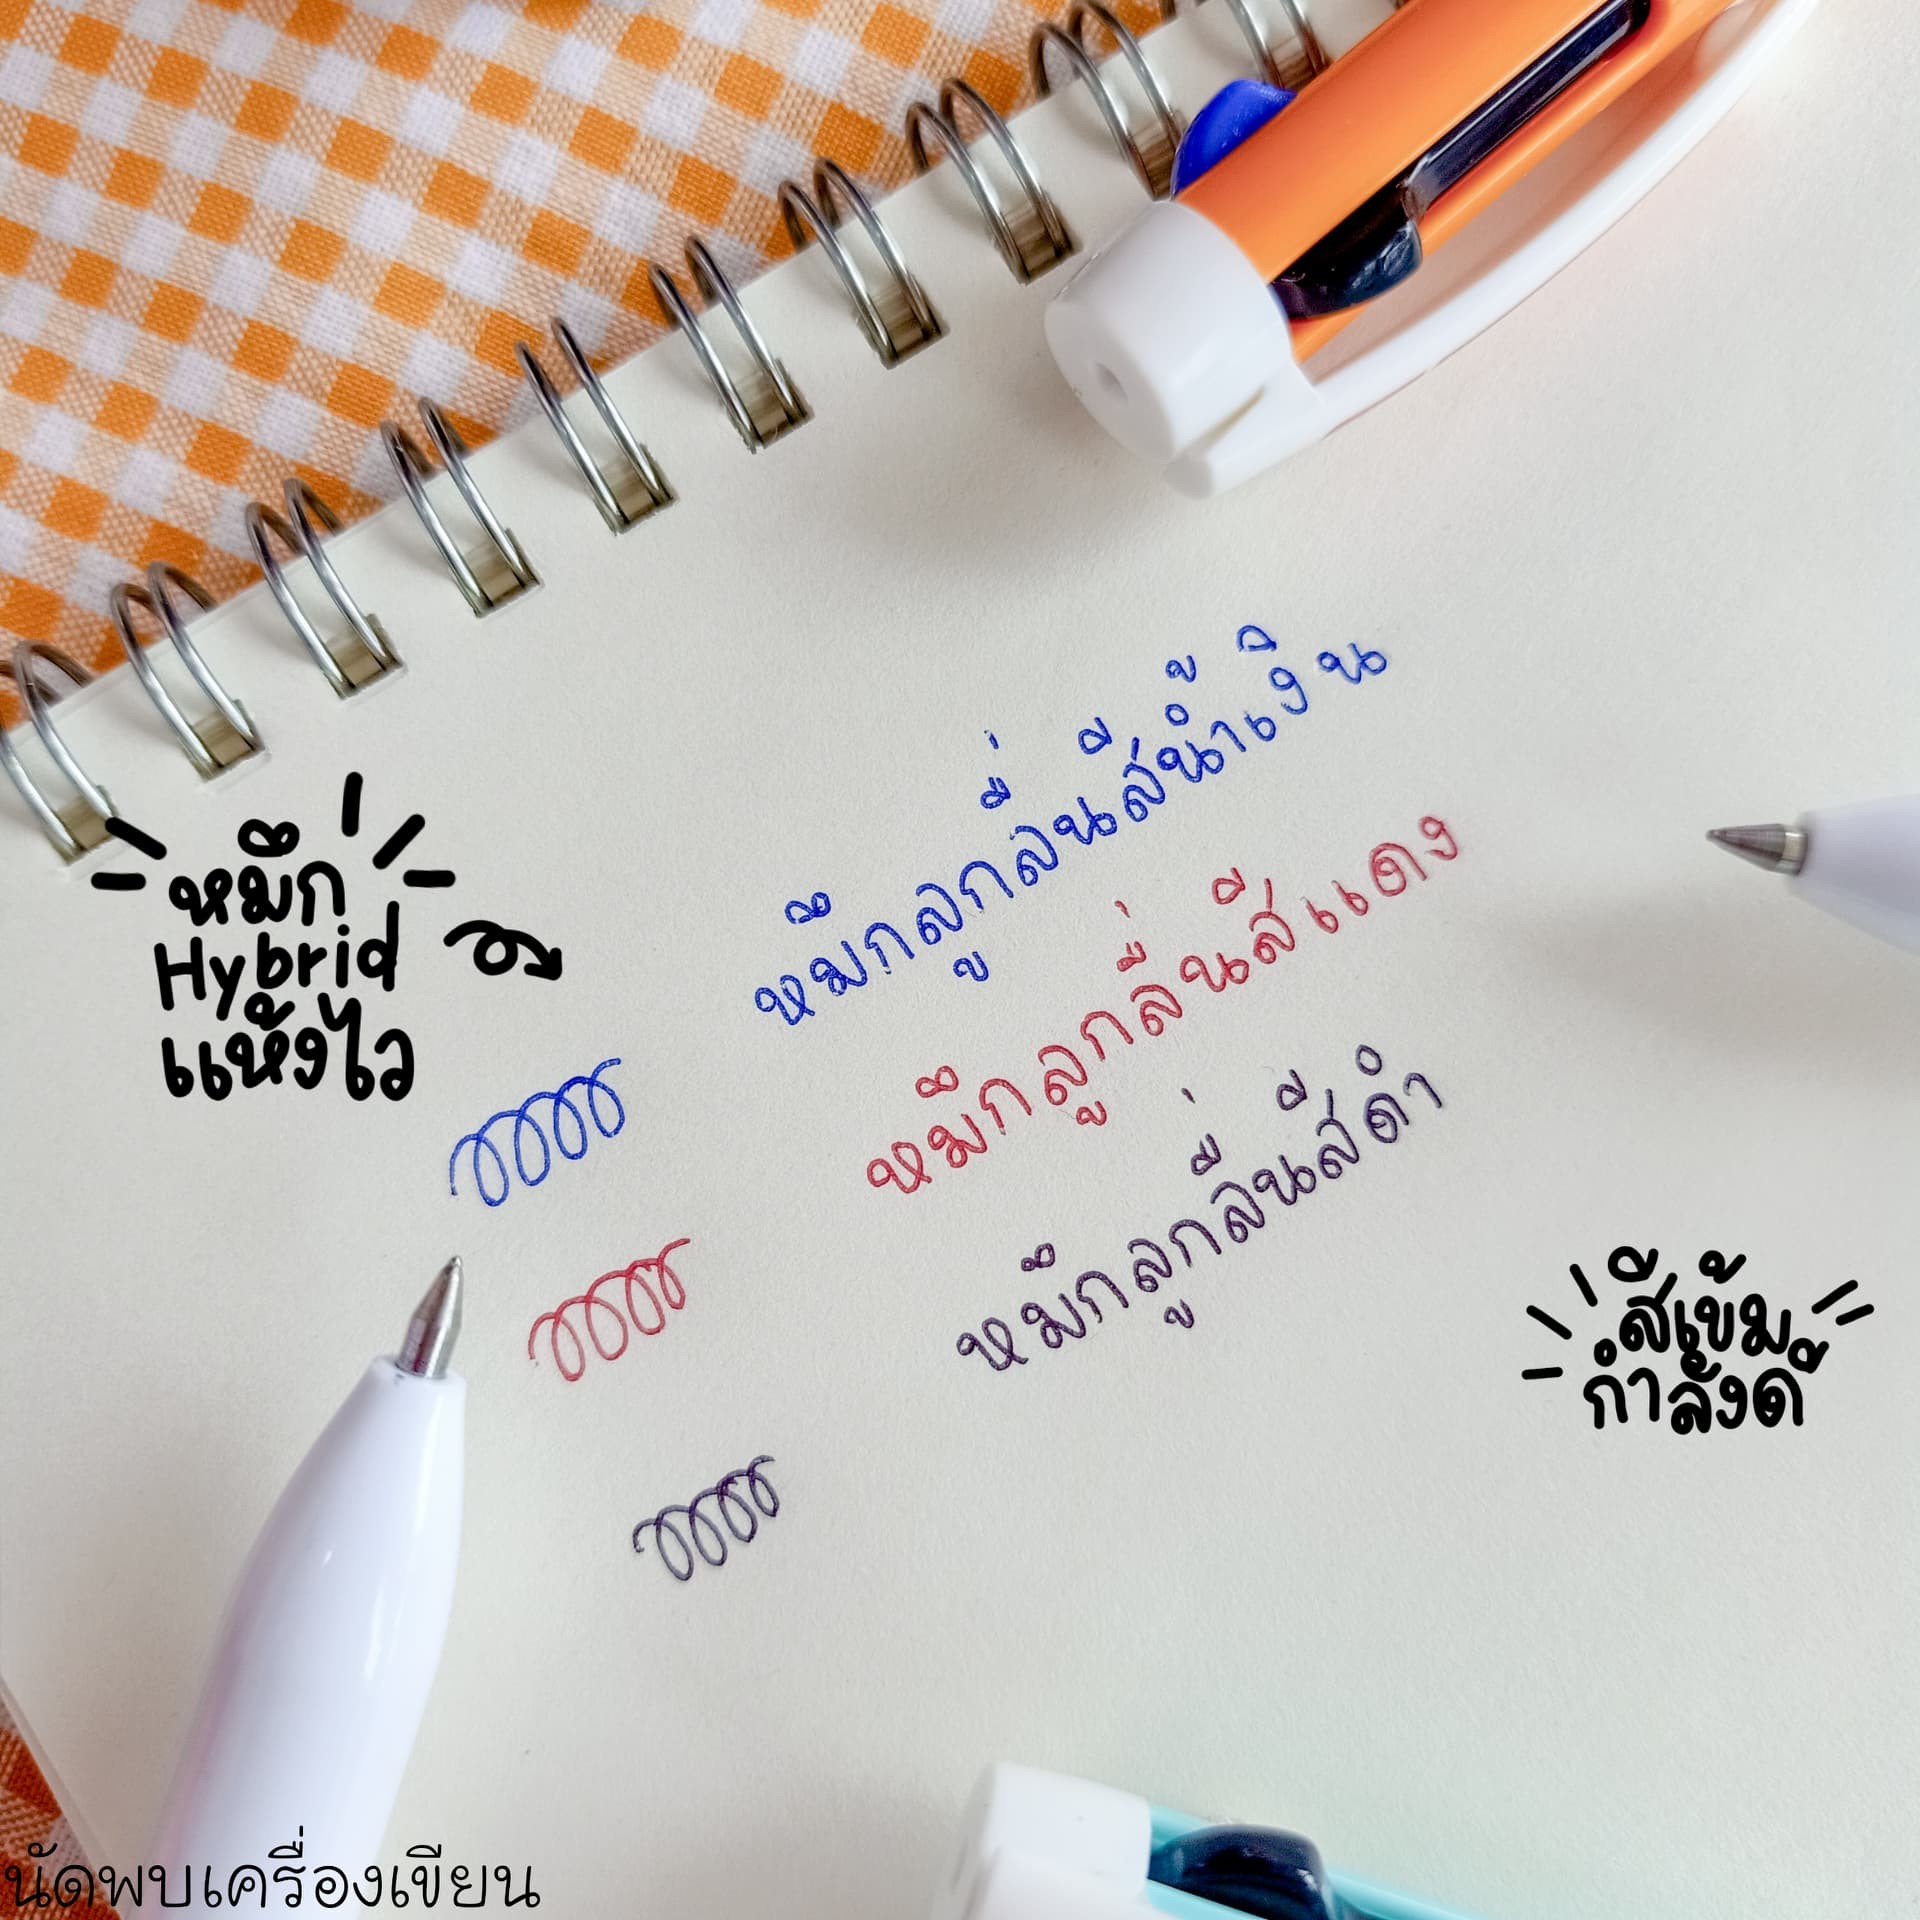 หมึกลูกลื่นสีน้ำเงิน
หมึก
Hybrid
แห้งไว
หมึกลูกลื่นสีแดง
หมึกลูกลื่นสีดำ
สีเข้ม
กำลังดี
นัดพบเครื่องเขียน